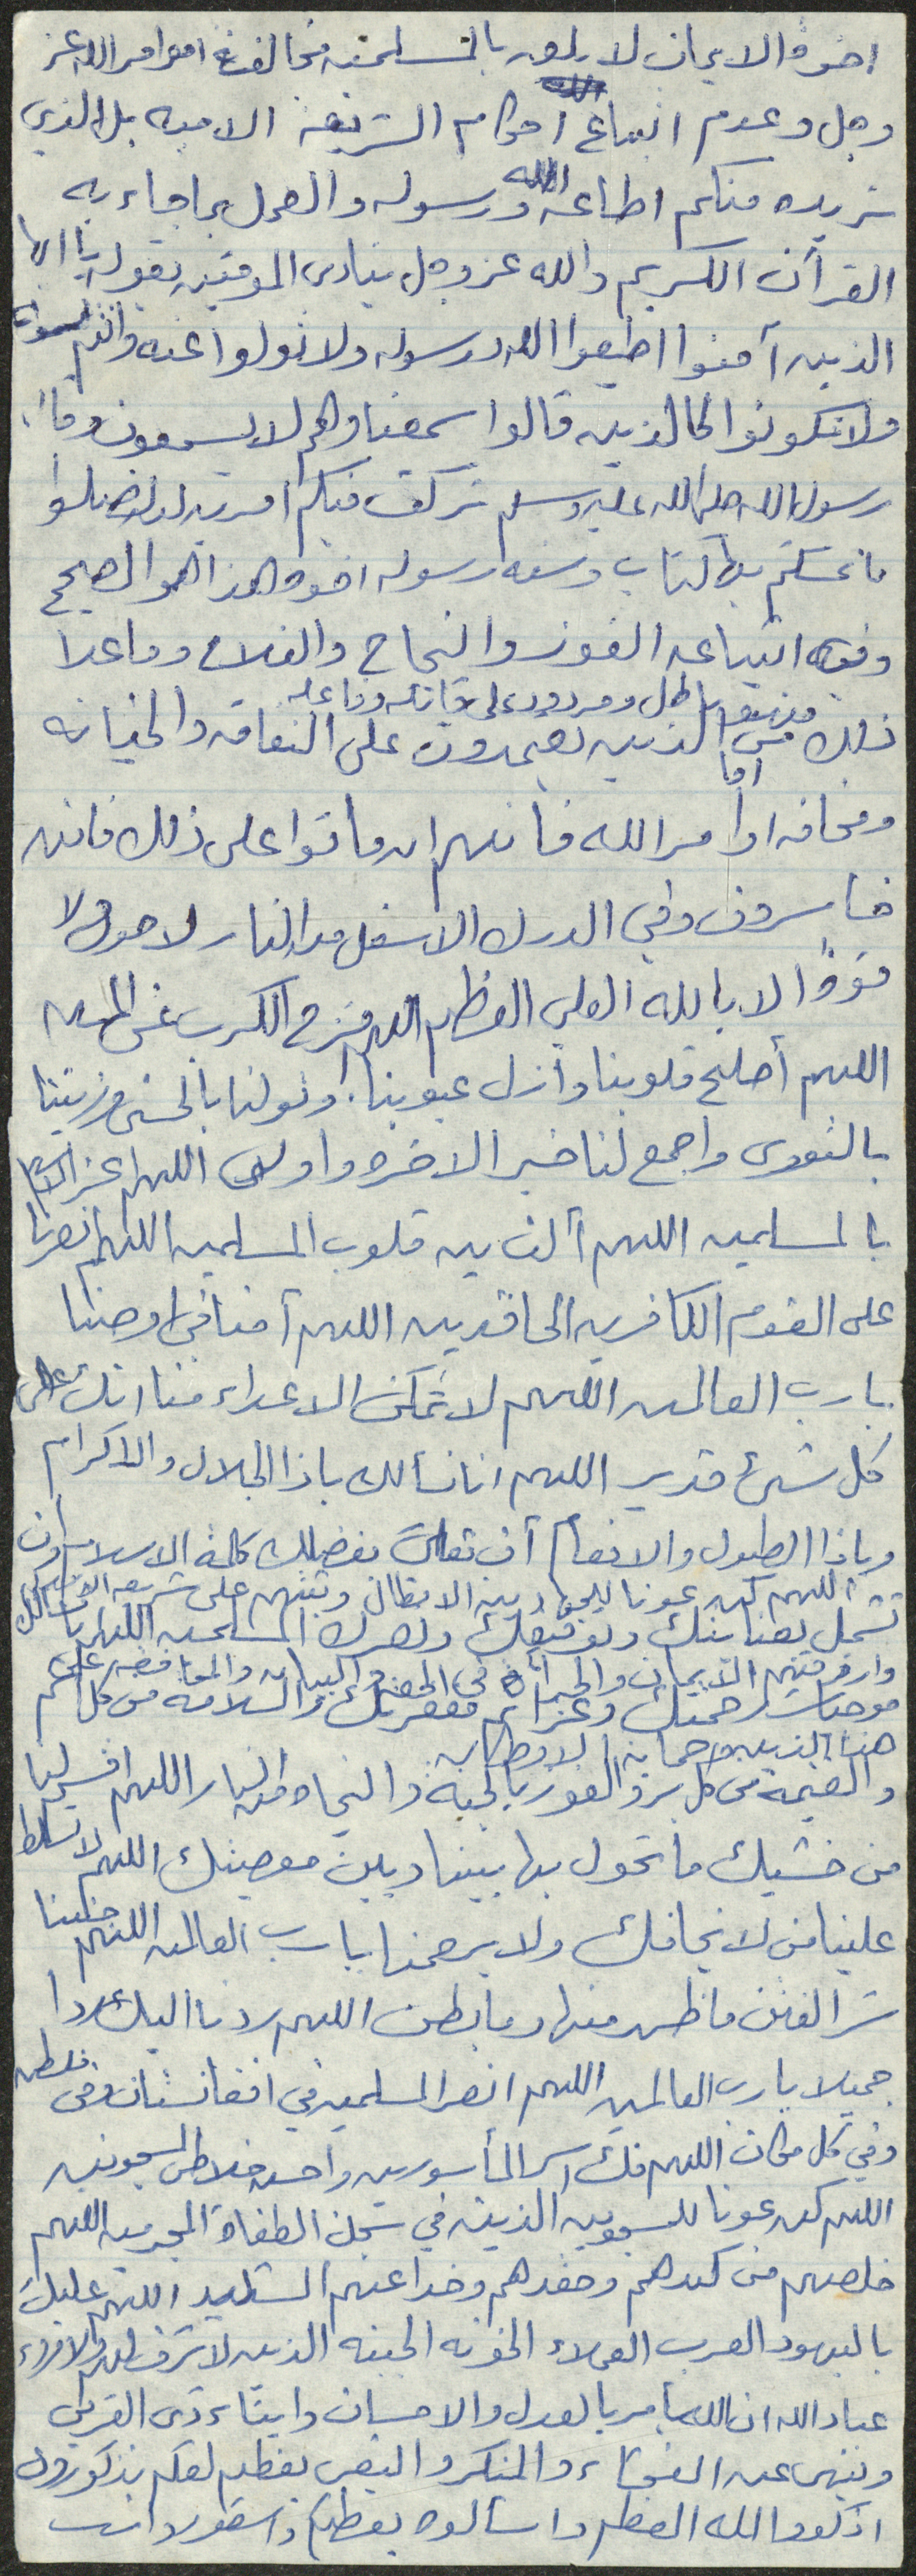 اخوة الايمان لا يليق بالمسلمين مخالفة اوامر الله عز
وجل وعدم اتباع احكام الشريعة الاسلاميه بل الذي
نريده منكم اطاعة الله ورسوله والعمل بما جاء به
القرآن الكريم والله عز وجل ينادى المومنين بقوله يا ايها
الذين آمنوا اطيعوا الله ورسوله ولا تولوا عنه وانتم تسمعون
ولا تكونوا كالذين قالوا سمعنا وهم لا يسمعون وقال
رسول الله صلى الله عليه وسلم تركت فيكم امرين لن تضلوا
ما تمسكتم بهما كتاب وسنة رسوله اخوه هذا هو الصحيح
وفيه اتباعه الفوز والنجاح والفلاح وما عدا
فهو باطل ومردود على قائله وفاعله
ذلك من الذين يعتمدون على النفاق والخيانه
اما
ومخافه اوامر الله فانهم ان ماتوا على ذلك فانهم
خاسرون وفي الدرك الاسفل من النار لا حول ولا
قوة الا بالله العلي العظيم اللهم فرج الكرب عن المسلمين
اللهم أصلح قلوبنا وأزل عيوبنا وتولنا بالحسنى وزينا
بالتقوى واجمع لنا خير الاخره واولى اللهم اعز الاسلام
بالمسلمين اللهم ألف بين قلوب المسلمين اللهم انصرنا
على القوم الكافرين الحاقدين اللهم آمنا في اوطننا
يا رب العالمين اللهم لا تمكن الاعداء منا انك على
كل شئ قدير اللهم انا نسالك ياذا الجلال والاكرام
وياذا الطول والانعام أن تعلي بفضلك كلمة الاسلام وان
اللهم كن عونا للمجاهدين الابطال وثبتهم على شريعه
تشمل بعنايتك وتوفيقك ونصرك المسلمين اللهم نسالك
وارزقهم الايمان والجرأة في الحق والبيان والمدافعه
موجبات رحمتك وعزائم مغفرتك والسلامة من كل اثم
هذا الدين وحماية الاوطان
والغنيمة من كل بر والفوز بالجنة والنجاة من النار اللهم اقسم لنا
من خشيتك ما تحول بها بيننا وبين معصيتك اللهم لا تسلط
علينا من لا يخافك ولا يرحمنا يا رب العالمين اللهم جنبنا
شر الفتن ما ظهر منها وما بطن اللهم ردنا اليك ردا
جميلا يا رب العالمين اللهم انصر المسلمين في افغانستان وفي فلسطين
وفي كل مكان اللهم فك اسر المأسورين واحسن خلاص المسجونين
اللهم كن عونا للمسجونين الذين في سجن الطغاة المجرمين اللهم
خلصهم من كيدهم وحقدهم وخداعهم الشديد اللهم عليك
باليهود العرب العملاء الخونه الجبنه الذين لا شرف لهم ولا
عباد الله ان الله يأمر بالعدل والاحسان وايتاء ذى القربى
وينهى عن الفحشاء والمنكر والبغى يعظكم لعلكم تذكرون
اذكروا الله العظيم واسألوه يعطيكم